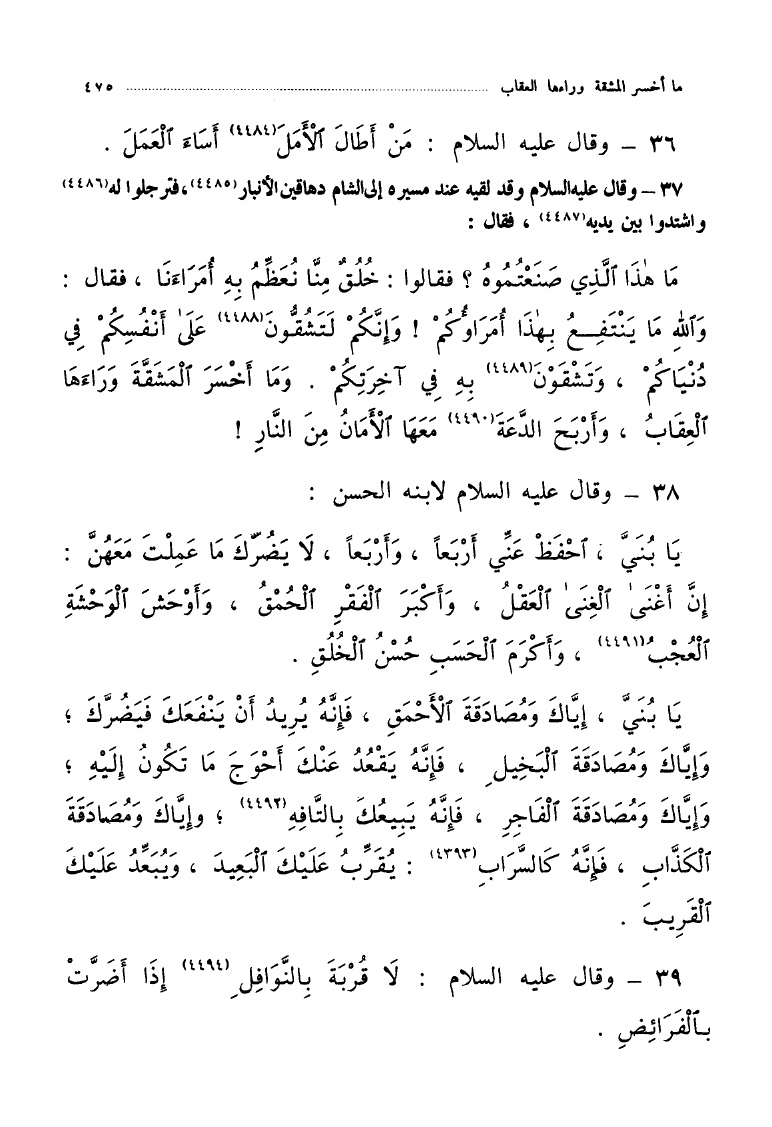 ما أخسر المشقة وراءها العقاب ........................................ ٤٧٥
٣٦ – وقال عليه السلام : مَنْ أَطَالَ ٱلْأَمَلَ(٤٤٨٤) أَسَاءَ ٱلْعَمَلَ .
٣٧ – وقال عليه السلام وقد لقيه عند مسيره إلى الشام دهاقين الأنبار(٤٤٨٥)، فترجلوا له(٤٤٨٦)
واشتدوا بين يديه(٤٤٨٧) ، فقال :
مَا هٰذَا ٱلَّذِي صَنَعْتُمُوهُ ؟ فقالوا : خُلُقٌ مِنَّا نُعَظِّمُ بِهِ أُمَرَاءَنَا ، فقال :
وَٱللهِ مَا يَنْتَفِعُ بِهٰذَا أُمَرَاؤُكُمْ ! وَإِنَّكُمْ لَتَشُقُّونَ(٤٤٨٨) عَلَىٰ أَنْفُسِكُمْ فِي
دُنْيَاكُمْ ، وَتَشْقَوْنَ(٤٤٨٩) بِهِ فِي آخِرَتِكُمْ . وَمَا أَخْسَرَ ٱلْمَشَقَّةَ وَرَاءَهَا
ٱلْعِقَابُ ، وَأَرْبَحَ الدَّعَةَ(٤٤٩٠) مَعَهَا ٱلْأَمَانُ مِنَ النَّارِ !
٣٨ – وقال عليه السلام لابنه الحسن :
يَا بُنَيَّ ، ٱحْفَظْ عَنِّي أَرْبَعاً ، وَأَرْبَعاً ، لَا يَضُرَّكَ مَا عَمِلْتَ مَعَهُنَّ :
إِنَّ أَغْنَىٰ ٱلْغِنَىٰ ٱلْعَقْلُ ، وَأَكْبَرَ ٱلْفَقْرِ ٱلْحُمْقُ ، وَأَوْحَشَ ٱلْوَحْشَةِ
ٱلْعُجْبُ(٤٤٩١) ، وَأَكْرَمَ ٱلْحَسَبِ حُسْنُ ٱلْخُلُقِ .
يَا بُنَيَّ ، إِيَّاكَ وَمُصَادَقَةَ ٱلْأَحْمَقِ ، فَإِنَّهُ يُرِيدُ أَنْ يَنْفَعَكَ فَيَضُرَّكَ ؛
وَإِيَّاكَ وَمُصَادَقَةَ ٱلْبَخِيلِ ، فَإِنَّهُ يَقْعُدُ عَنْكَ أَحْوَجَ مَا تَكُونُ إِلَيْهِ ؛
وَإِيَّاكَ وَمُصَادَقَةَ ٱلْفَاجِرِ ، فَإِنَّهُ يَبِيعُكَ بِالتَّافِهِ(٤٤٩٢) ؛ وإِيَّاكَ وَمُصَادَقَةَ
ٱلْكَذَّابِ ، فَإِنَّهُ كَالسَّرَابِ(٤٣٩٣) : يُقَرِّبُ عَلَيْكَ ٱلْبَعِيدَ ، وَيُبَعِّدُ عَلَيْكَ
ٱلْقَرِيبَ .
٣٩ – وقال عليه السلام : لَا قُرْبَةَ بِالنَّوَافِلِ(٤٤٩٤) إِذَا أَضَرَّتْ
بِٱلْفَرَائِضِ .